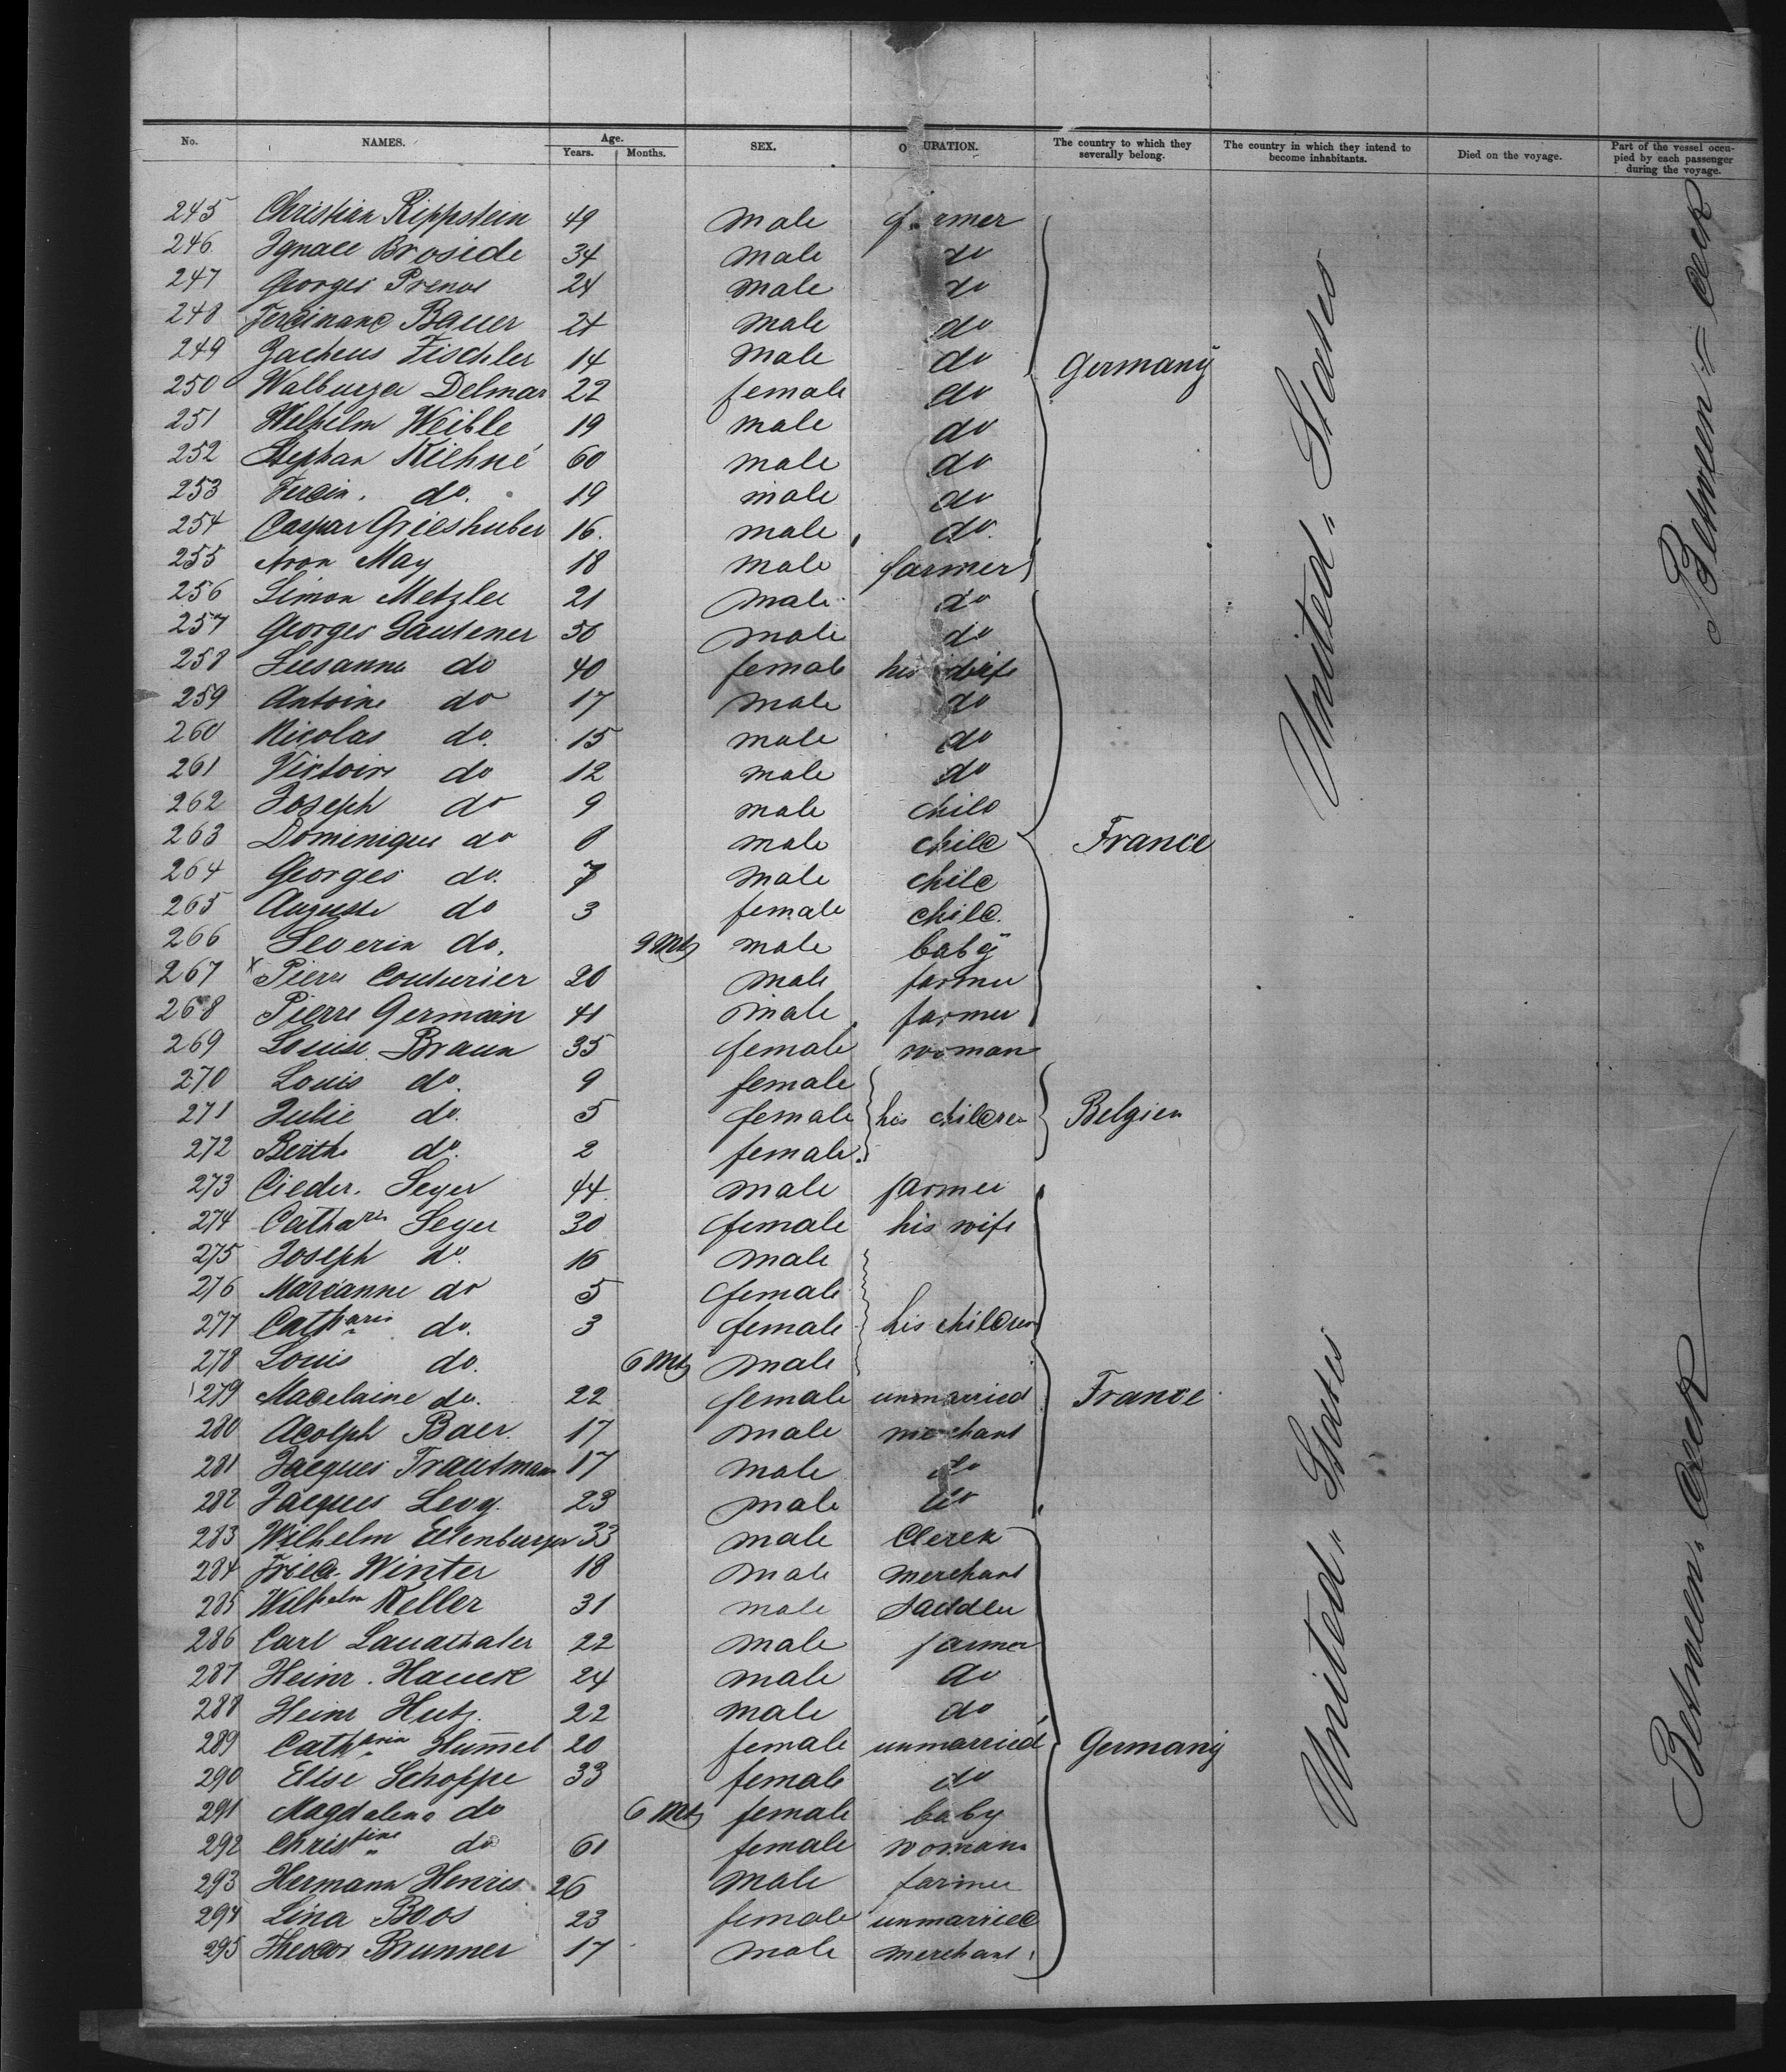 No. NAMES. Age. Years. Months. SEX. O URATION. The country to which they severally belong. The country in which they intend to become inhabitants. Died on the voyage. Part of the vessel occupied by each passenger during the voyage.
245 Christian Rippstein 49 male farmer
246 Ignace Broside 34 male do
247 Georges Prenot 24 male do
248 Ferdinand Bauer 21 male do
249 Zacheus Fischler 14 male do Germany
250 Walburga Delmar 22 female do
251 Wilhelm Weible 19 male do
252 Stephan Kiehné 60 male do
253 Ferdin. do. 19 male do
254 Caspar Grieshuber 16. male do.
255 Aron May 18 male farmer
256 Simon Metzler 21 male do
257 Georges Lautener 50 male do
258 Susanne do 40 female his wife
259 Antoine do 17 male do
260 Nicolas do. 15 male do
261 Victoire do 12 male do
262 Joseph do 9 male child
263 Dominique do 8 male child France
264 Georges do. 7 male child
265 Auguste do 3 female child.
266 Severin do. 9 Mts male baby
267 x Pierre Couturier 20 male farmer
268 Pierre Germain 41 male farmer
269 Louise Braun 35 female woman
270 Louis do. 9 female
271 Julie do. 5 female his children Belgien
272 Berthe do. 2 female.
273 Seyer 44 male farmer
274 Catharin Seyer 30 female his wife
275 Joseph do. 16 male
276 Marianne do 5 female
277 Catharin do. 3 female his children
278 Louis do. 6 Mts male
279 Madelaine do. 22 female unmarried France
280 Adolph Baer. 17 male merchant
281 Jacques Trautmann 17 male do
282 Jacques Levy. 23 male do
283 Wilhelm Ellenberger 33 male Clerck
284 Fried. Winter 18 male merchant
285 Wilhelm Keller 31 male Saddler
286 Carl Lauathaler 22 male farmer
287 Heinr. Hauck 24 male do
288 Heinr Hutz. 22 male do
289 Catharin Hummel 20 female unmarried Germany
290 Elise Schoppe 33 female do
291 Magdalena do 6 Mts female baby
292 Christine do 61 female woman
293 Hermann Henris 26 male farmer
294 Lina Boos 23 female unmarried
295 Theodor Brunner 17 male merchant
United States
United States
Between Deck
Between Deck